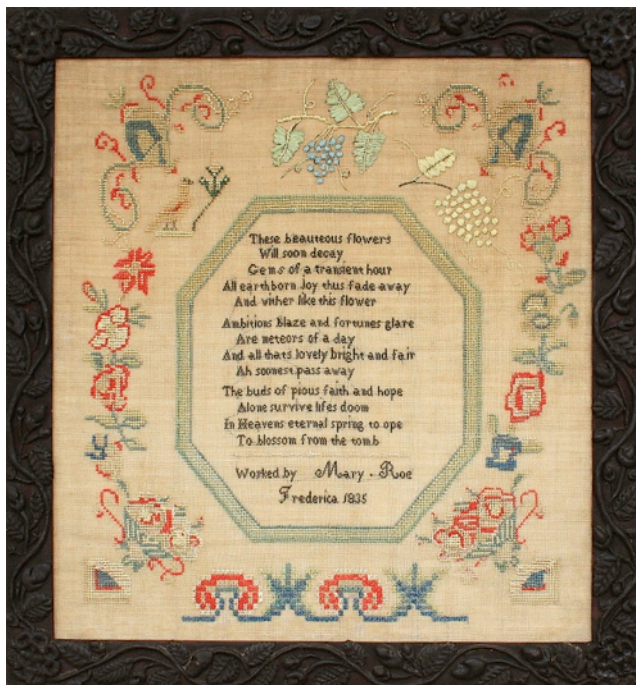 These beauteous flowers
Will soon decay
Gems of a transient hour
All earthborn Joy thus fade away
And wither like this flower
Ambitions blaze and fortunes glare
Are meteors of a day
And all thats lovely bright and fair
Ah soonest pass away
The buds of pious faith and hope
Alone survive lifes doom
In Heavens eternal spring to ope
To blossom from the tomb
Worked by Mary . Roe
Frederica 1835